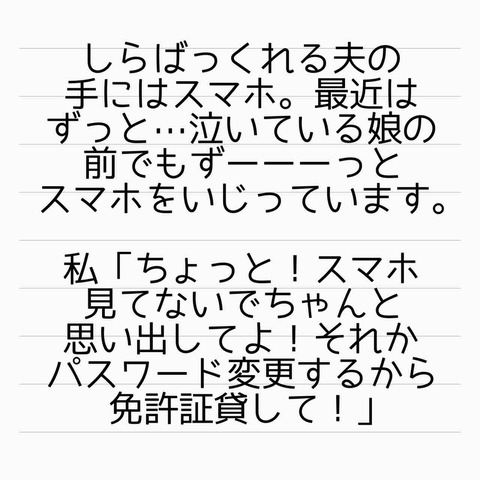 しらばっくれる夫の
手にはスマホ。最近は
ずっと…泣いている娘の
前でもずーーーっと
スマホをいじっています。
私「ちょっと！スマホ
見てないでちゃんと
思い出してよ！それか
パスワード変更するから
免許証貸して！」